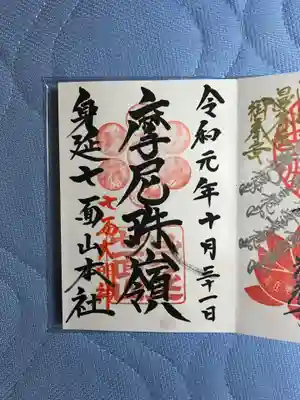 令和元年十月三十一日
摩尼珠嶺
七面大明神
身延七面山本社